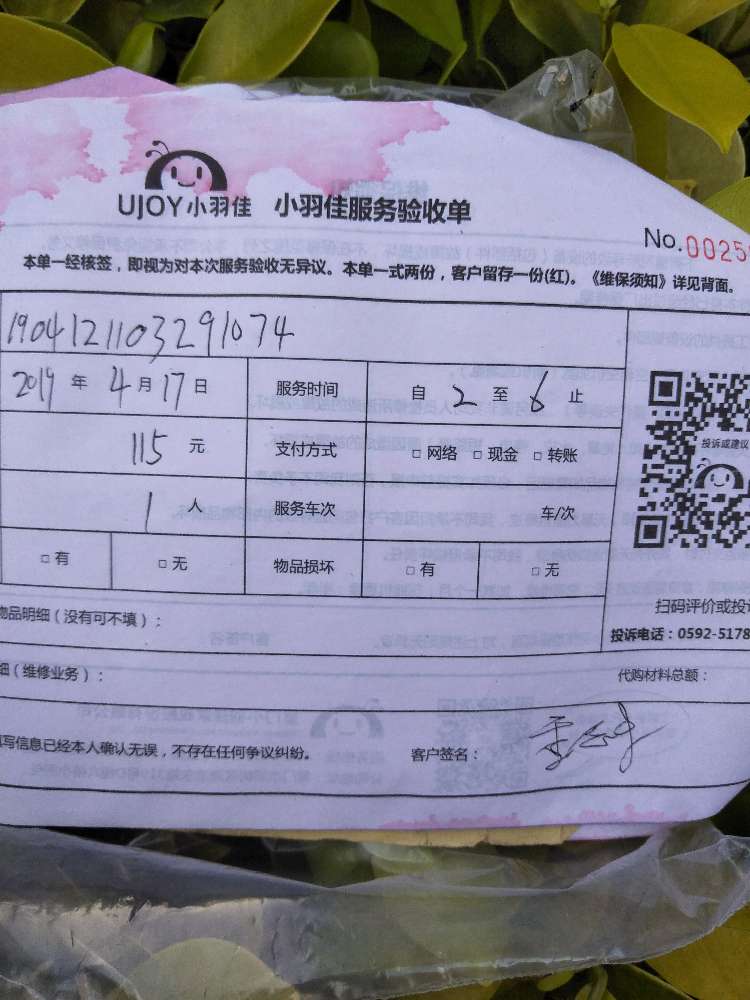 UJOY小羽佳 小羽佳服务验收单
No.0025
本单一经核签，即视为对本次服务验收无异议。本单一式两份，客户留存一份(红)。《维保须知》详见背面。
1904121103291074
2019 年 4 月 17 日 服务时间 自 2 至 6 止
115 元 支付方式 □ 网络 □ 现金 □ 转账
投诉或建议
1 人 服务车次 车/次
□ 有 □ 无 物品损坏 □ 有 □ 无
扫码评价或投
物品明细（没有可不填）：
投诉电话：0592-5178
细（维修业务）：
代购材料总额：
写信息已经本人确认无误，不存在任何争议纠纷。 客户签名：